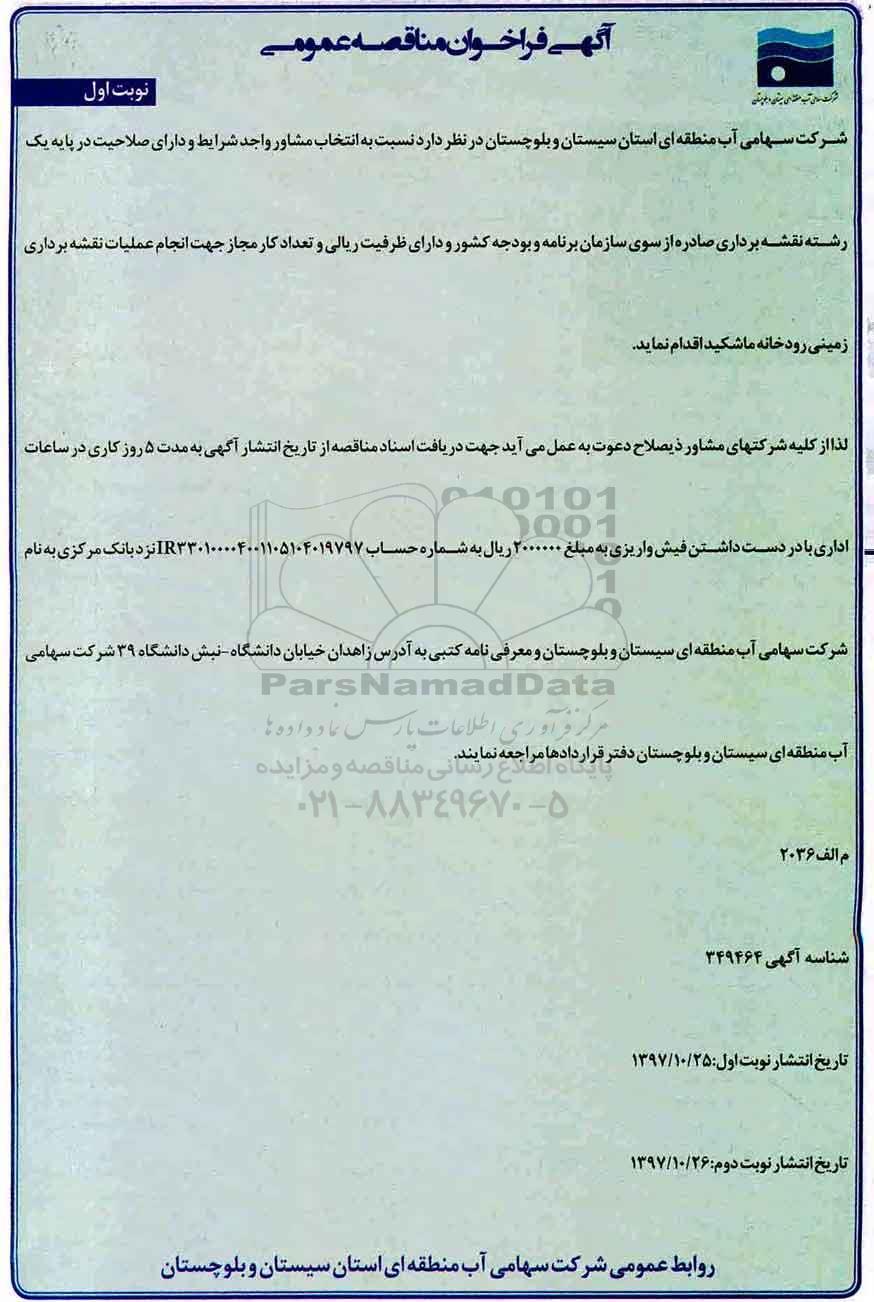 آگهی فراخوان مناقصه عمومی
شرکت سهامی آب منطقه ای سیستان و بلوچستان
نوبت اول
شرکت سهامی آب منطقه ای استان سیستان و بلوچستان در نظر دارد نسبت به انتخاب مشاور واجد شرایط و دارای صلاحیت در پایه یک
رشته نقشه برداری صادره از سوی سازمان برنامه و بودجه کشور و دارای ظرفیت ریالی و تعداد کار مجاز جهت انجام عملیات نقشه برداری
زمینی رودخانه ماشکید اقدام نماید.
لذا از کلیه شرکتهای مشاور ذیصلاح دعوت به عمل می آید جهت دریافت اسناد مناقصه از تاریخ انتشار آگهی به مدت ۵ روز کاری در ساعات
010101
0001
اداری با در دست داشتن فیش واریزی به مبلغ ۲۰۰۰۰۰۰ ریال به شماره حساب IR۳۳۰۱۰۰۰۰۴۰۰۱۱۰۵۱۰۴۰۱۹۷۹۷ نزد بانک مرکزی به نام
شرکت سهامی آب منطقه ای سیستان و بلوچستان و معرفی نامه کتبی به آدرس زاهدان خیابان دانشگاه-نبش دانشگاه ۳۹ شرکت سهامی
ParsNamadData
مرکز فرآوری اطلاعات پارس نماد داده ها
آب منطقه ای سیستان و بلوچستان دفتر قراردادها مراجعه نمایند.
پایگاه اطلاع رسانی مناقصه و مزایده
۰۲۱-۸۸۳۴۹۶۷۰-۵
م الف ۲۰۳۶
شناسه آگهی ۳۴۹۴۶۴
تاریخ انتشار نوبت اول:۱۳۹۷/۱۰/۲۵
تاریخ انتشار نوبت دوم:۱۳۹۷/۱۰/۲۶
روابط عمومی شرکت سهامی آب منطقه ای استان سیستان و بلوچستان